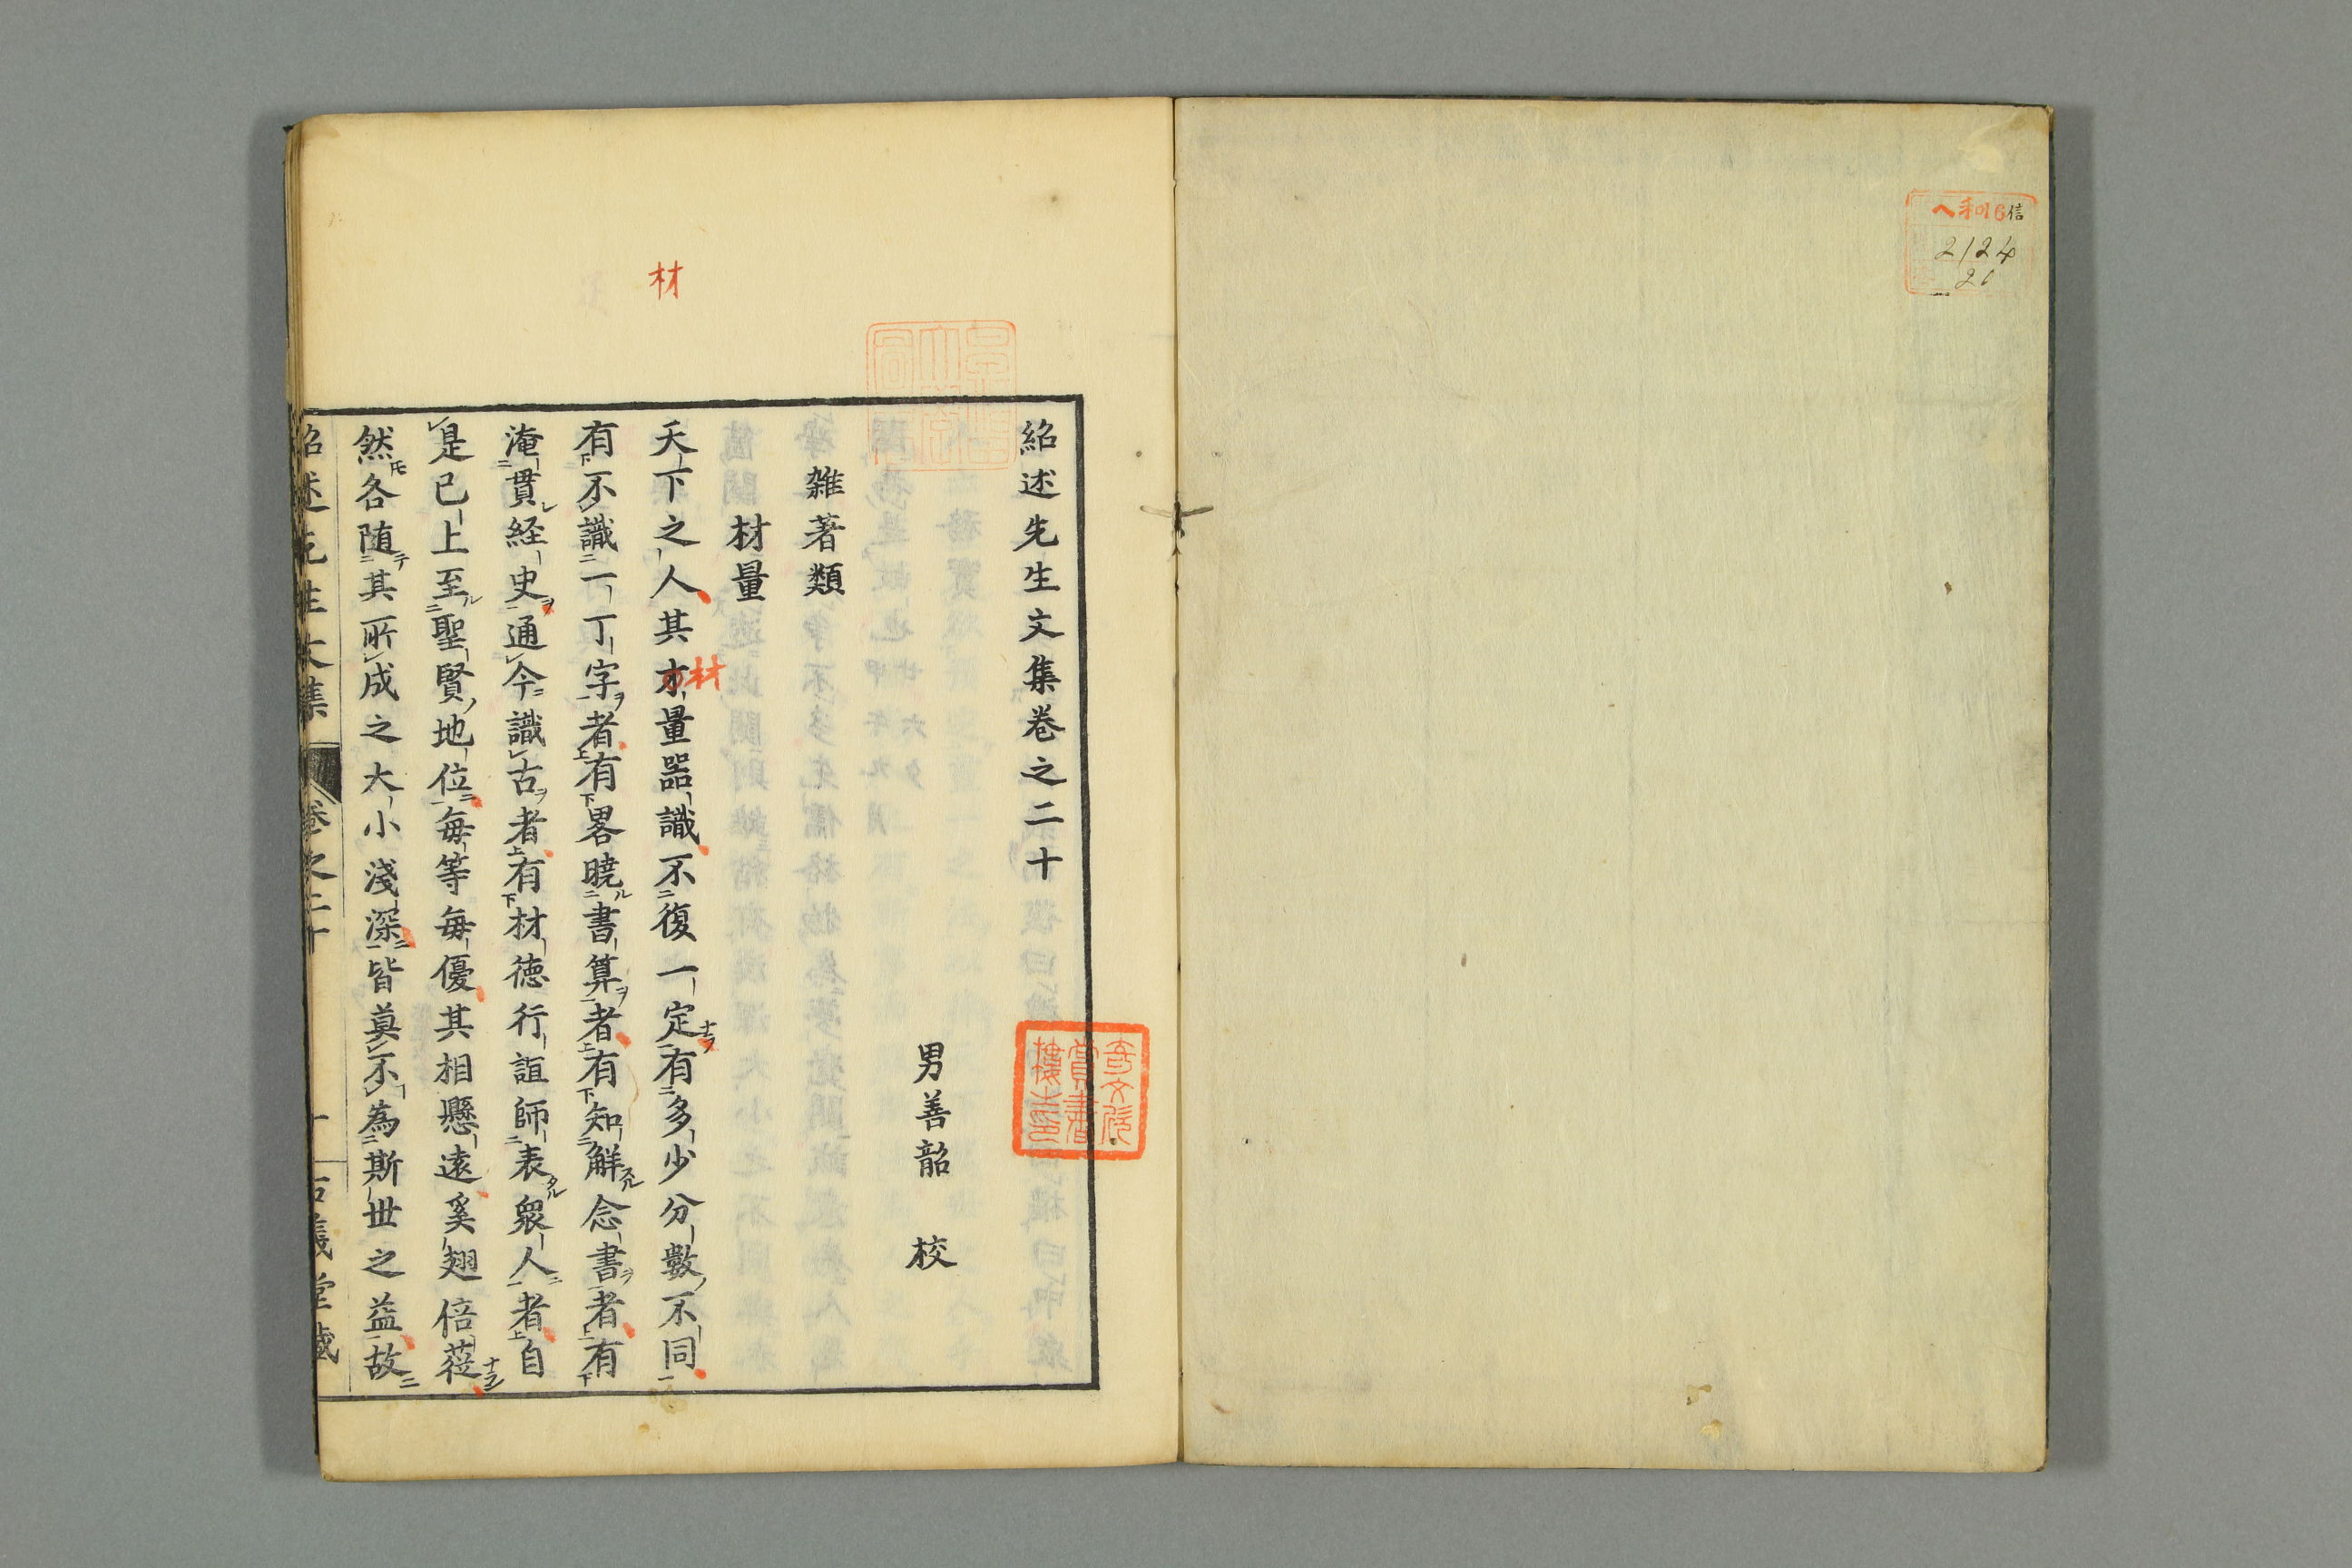 信
2124
20
紹述先生文集巻之二十
男善韶 校
雜著類
材量
天下之人其才量器識不復一定有多少分數不同
有不識一丁字者有畧曉書算者有知解念書者有
淹貫経史通今識古者有材徳行誼師表衆人者自
是已上至聖賢地位每等每優其相懸遠奚翅倍蓰
然各随其所成之大小淺深皆莫不為斯世之益故
紹述先生文集 巻之二十 一 古義堂藏
材
材
奇文欣賞書樓之印